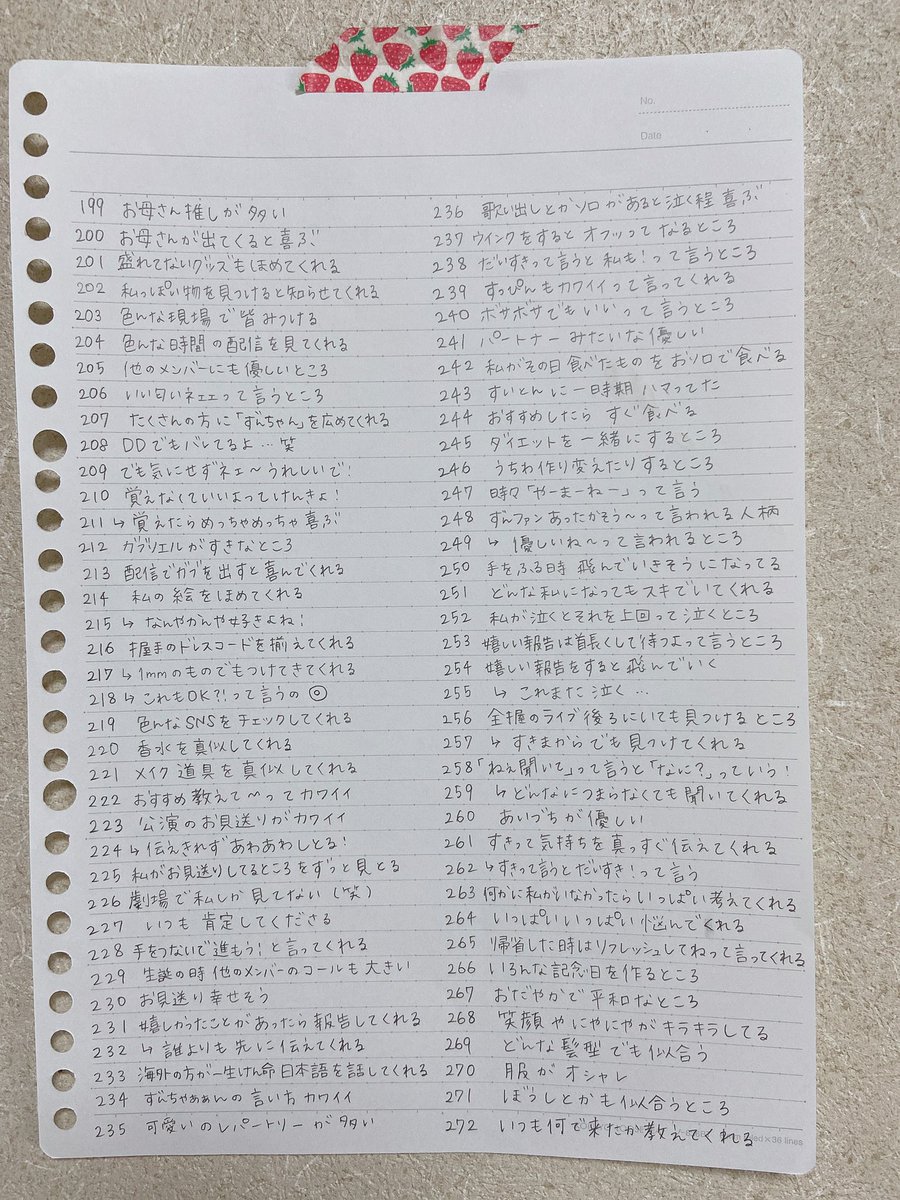 No.
Date
199 お母さん推しが多い
200 お母さんが出てくると喜ぶ
201 盛れてないグッズもほめてくれる
202 私っぽい物を見つけると知らせてくれる
203 色んな現場で皆みつける
204 色んな時間の配信を見てくれる
205 他のメンバーにも優しいところ
206 いい匂いネェェって言うところ
207 たくさんの方に「ずんちゃん」を広めてくれる
208 DDでもバレてるよ…笑
209 でも気にせずネェ〜うれしいで!
210 覚えなくていいよってけんきょ!
211 ↳ 覚えたらめっちゃめっちゃ喜ぶ
212 ガブリエルがすきなところ
213 配信でガブを出すと喜んでくれる
214 私の絵をほめてくれる
215 ↳ なんやかんや好きよね!
216 握手のドレスコードを揃えてくれる
217 ↳ 1mmのものでもつけてきてくれる
218 ↳ これもOK?!って言うの◎
219 色んなSNSをチェックしてくれる
220 香水を真似してくれる
221 メイク道具を真似してくれる
222 おすすめ教えて〜ってカワイイ
223 公演のお見送りがカワイイ
224 ↳ 伝えきれずあわあわしとる!
225 私がお見送りしてるところをずっと見とる
226 劇場で私しか見てない(笑)
227 いつも肯定してくださる
228 手をつないで進もう!と言ってくれる
229 生誕の時他のメンバーのコールも大きい
230 お見送り幸せそう
231 嬉しかったことがあったら報告してくれる
232 ↳ 誰よりも先に伝えてくれる
233 海外の方が一生けん命日本語を話してくれる
234 ずんちゃぁぁんの言い方カワイイ
235 可愛いのレパートリーが多い
236 歌い出しとかソロがあると泣く程喜ぶ
237 ウインクをするとオフッってなるところ
238 だいすきって言うと私も!って言うところ
239 すっぴんもカワイイって言ってくれる
240 ボサボサでもいいって言うところ
241 パートナーみたいな優しい
242 私がその日食べたものをおソロで食べる
243 すいとんに一時期ハマってた
244 おすすめしたらすぐ食べる
245 ダイエットを一緒にするところ
246 うちわ作り変えたりするところ
247 時々「やーまーねー」って言う
248 ずんファンあったかそう〜って言われる人柄
249 ↳ 優しいね〜って言われるところ
250 手をふる時飛んでいきそうになってる
251 どんな私になってもスキでいてくれる
252 私が泣くとそれを上回って泣くところ
253 嬉しい報告は首長くして待つよって言うところ
254 嬉しい報告をすると飛んでいく
255 ↳ これまた泣く…
256 全握のライブ後ろにいても見つけるところ
257 ↳ すきまからでも見つけてくれる
258 「ねぇ聞いて」って言うと「なに?」っていう!
259 ↳ どんなにつまらなくても聞いてくれる
260 あいづちが優しい
261 すきって気持ちを真っすぐ伝えてくれる
262 ↳ すきって言うとだいすき!って言う
263 何かに私がいなかったらいっぱい考えてくれる
264 いっぱいいっぱい悩んでくれる
265 帰省した時はリフレッシュしてねって言ってくれる
266 いろんな記念日を作るところ
267 おだやかで平和なところ
268 笑顔やにやにやがキラキラしてる
269 どんな髪型でも似合う
270 服がオシャレ
271 ぼうしとかも似合うところ
272 いつも何で来たか教えてくれる
ed×36 lines